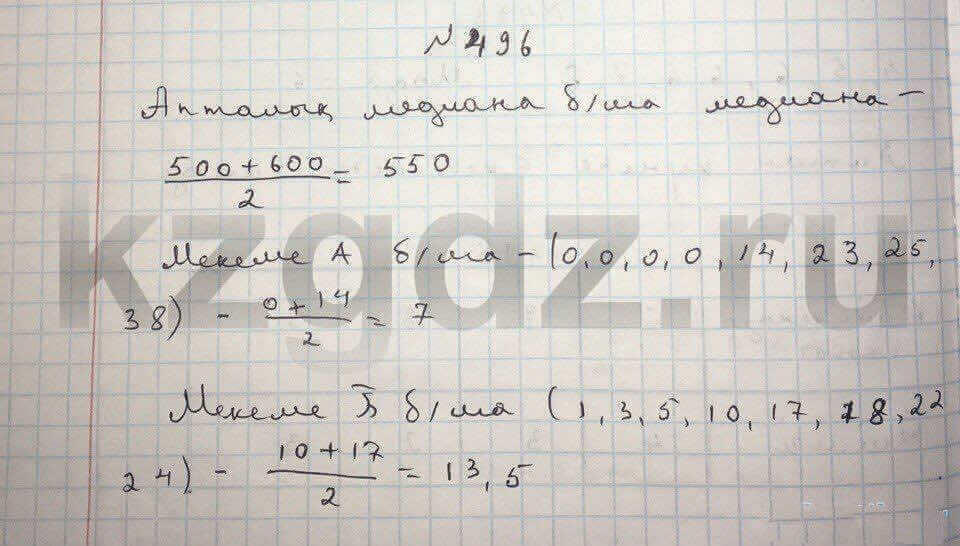 № 496
Апталық медиана б/ша медиана –
500 + 600
2
= 550
Мекеме А б/ша – (0, 0, 0, 0, 14, 23, 25,
38) – 0 + 14
2
= 7
Мекеме Б б/ша (1, 3, 5, 10, 17, 18, 22
24) – 10 + 17
2
= 13,5
kzgdz.ru